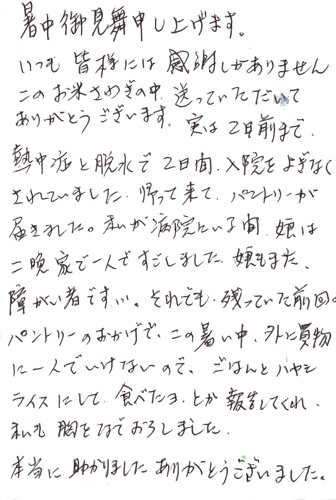 暑中御見舞申し上げます。
いつも皆様には感謝しかありません
このお米さわぎの中、送っていただいて
ありがとうございます。実は2日前まで、
熱中症と脱水で2日間、入院をよぎなく
されていました。帰って来て、パントリーが
届きました。私が病院にいる間、娘は
二晩家で一人ですごしました。娘もまた、
障がい者です…。それでも、残っていた前回の
パントリーのおかげで、この暑い中、外に買物
に一人でいけないので、ごはんとハヤシ
ライスにして、食べたヨ、とか報告してくれ、
私も胸をなでおろしました。
本当に助かりました ありがとうございました。